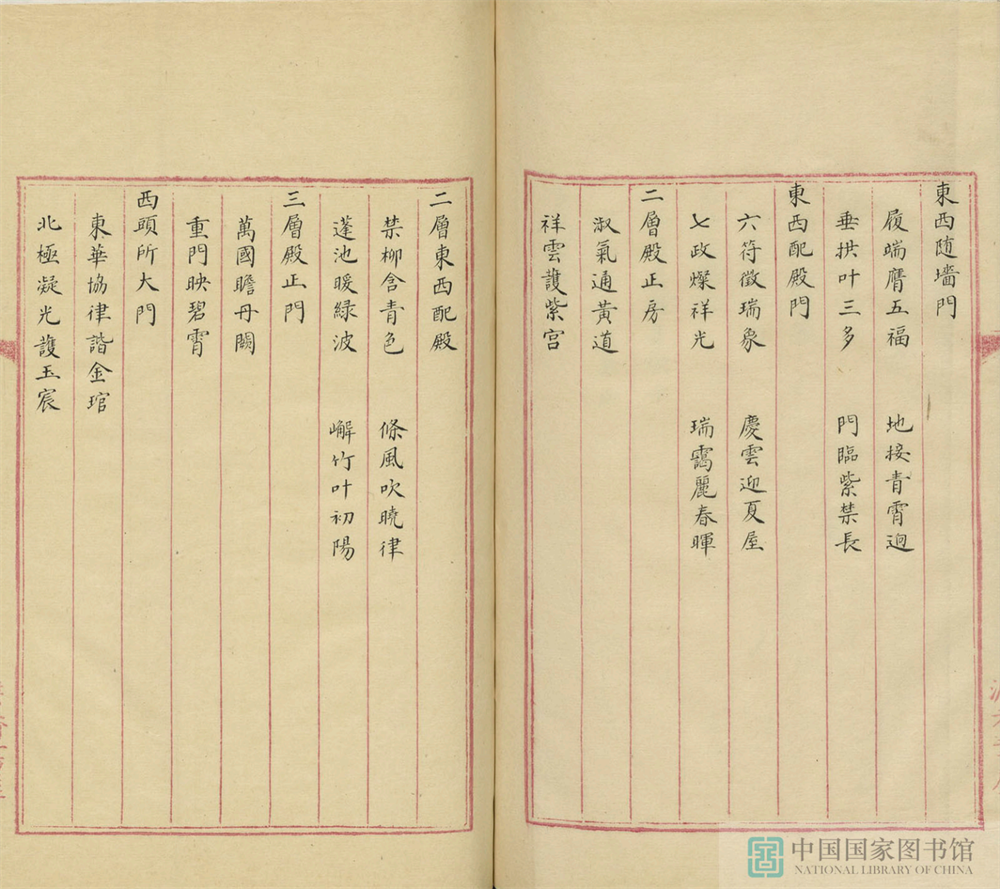 東西随墻門
履端膺五福　地接青霄迥
垂拱叶三多　門臨紫禁長
東西配殿門
六符徵瑞象　慶雲迎夏屋
七政燦祥光　瑞靄麗春暉
二層殿正房
淑氣通黃道
祥雲護紫宫
二層東西配殿
禁柳含青色　條風吹曉律
蓬池暖緑波　嶰竹叶初陽
三層殿正門
萬國瞻丹闕
重門映碧霄
西頭所大門
東華協律諧金琯
北極凝光護玉宸
中国国家图书馆
NATIONAL LIBRARY OF CHINA